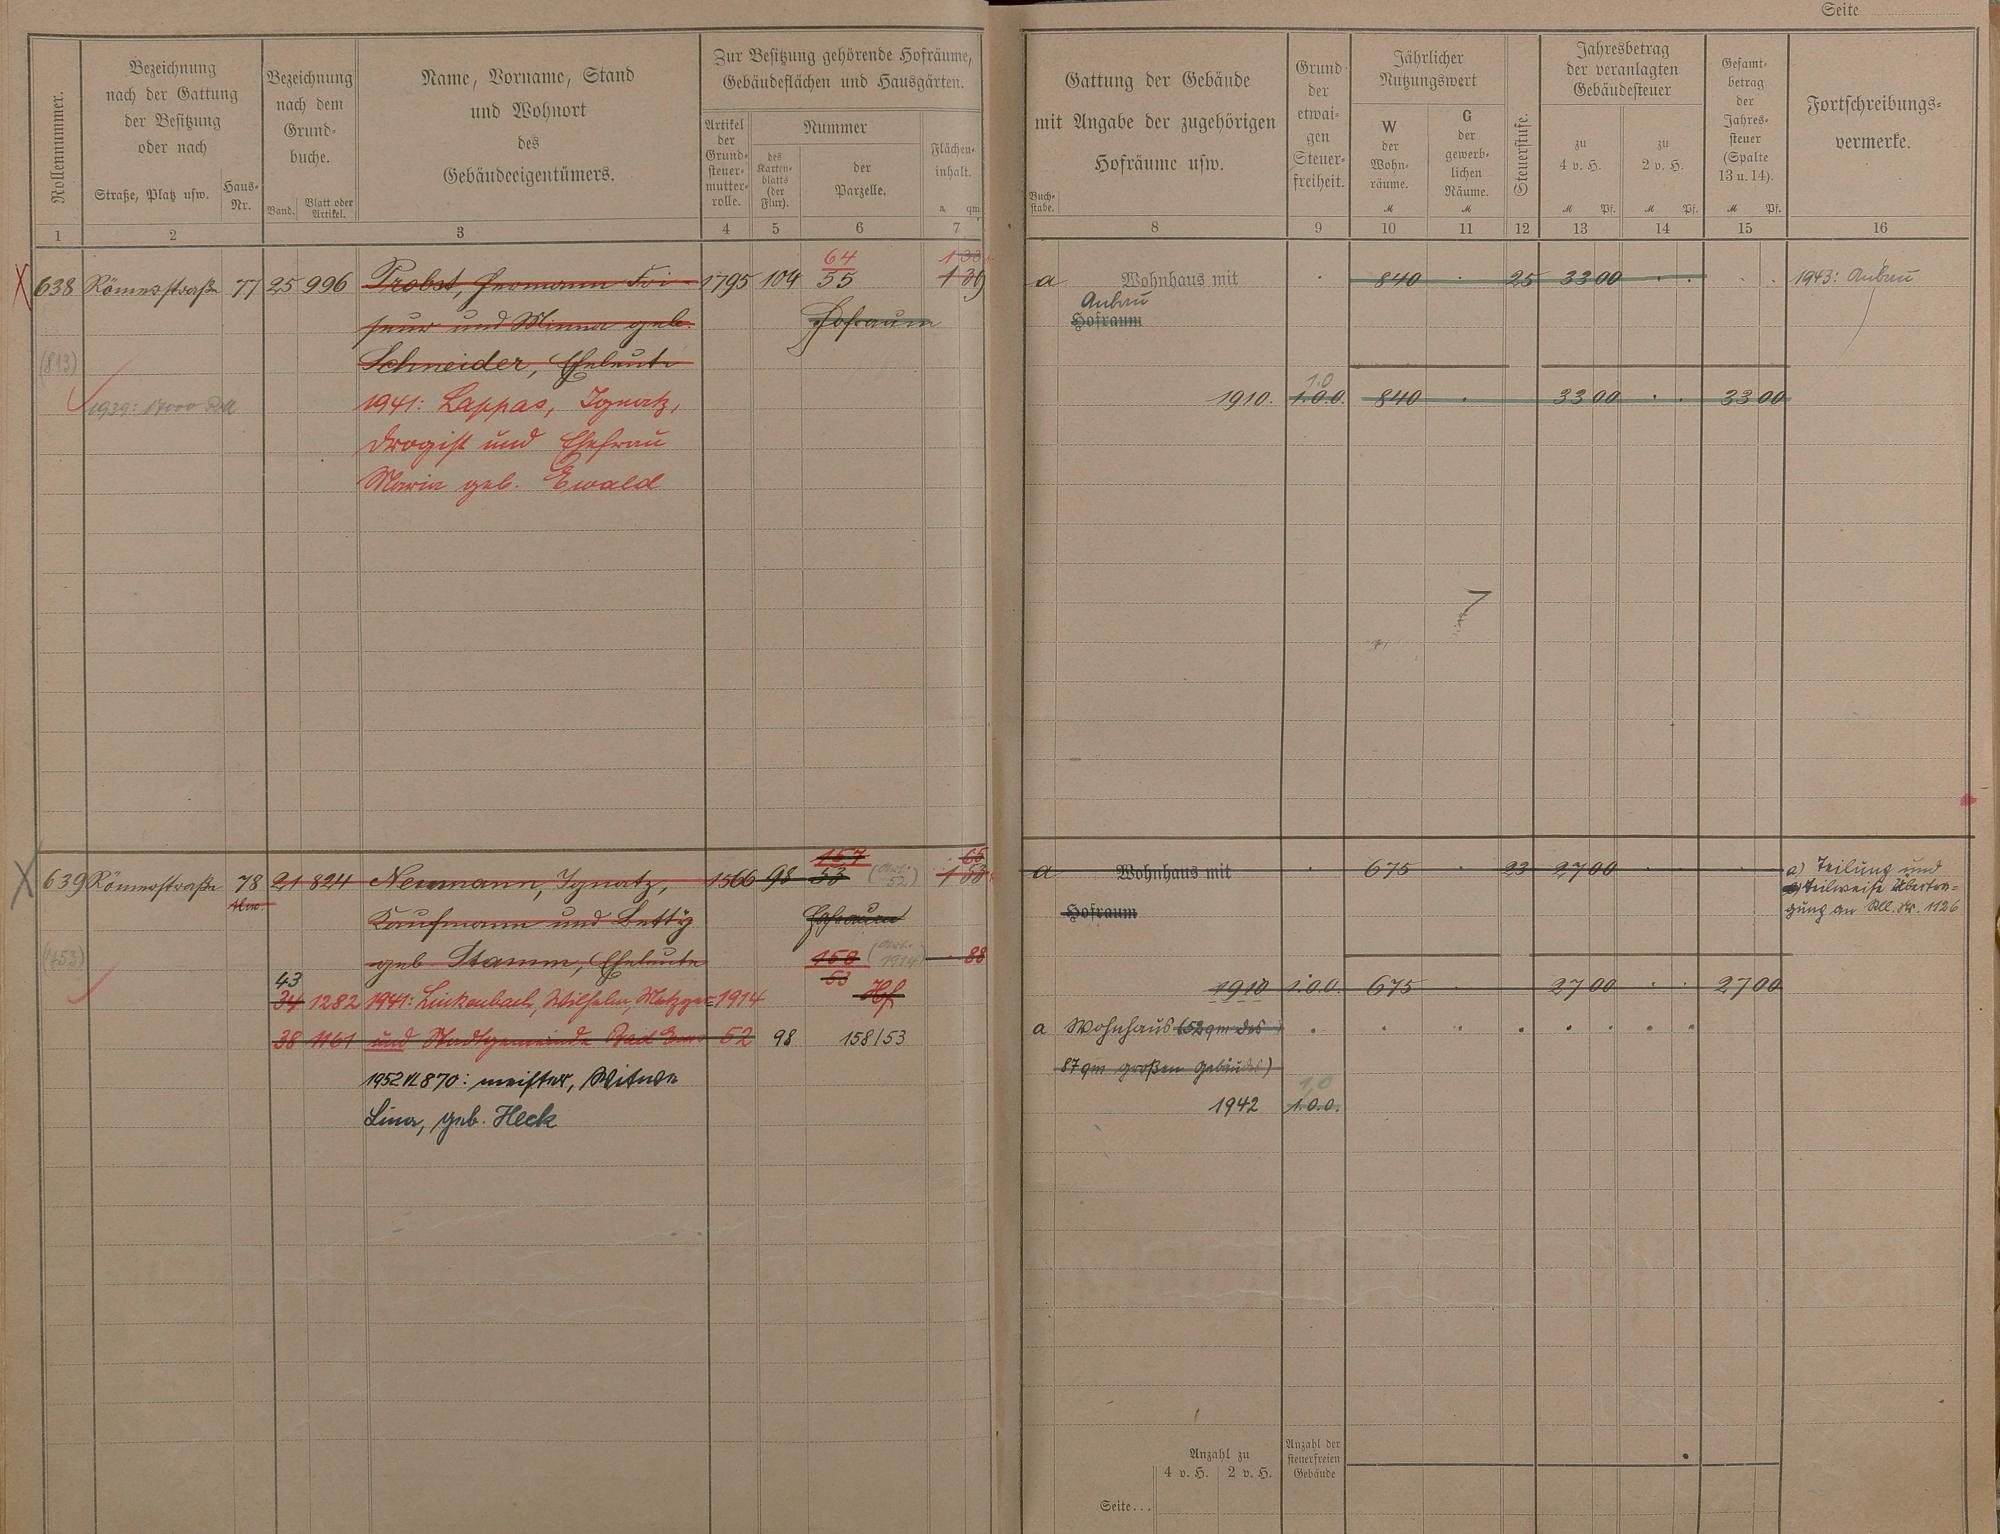 Seite
Rollennummer.
Bezeichnung
nach der Gattung
der Besitzung
oder nach
Straße, Platz usw.
Haus-
Nr.
Bezeichnung
nach dem
Grund-
buche.
Band.
Blatt oder
Artikel.
Name, Vorname, Stand
und Wohnort
des
Gebäudeeigentümers.
Zur Besitzung gehörende Hofräume,
Gebäudeflächen und Hausgärten.
Artikel
der
Grund-
steuer-
mutter-
rolle.
Nummer
des
Karten-
blatts
(der
Flur).
der
Parzelle.
Flächen-
inhalt.
a qm
Gattung der Gebäude
mit Angabe der zugehörigen
Hofräume usw.
Buch-
stabe.
Grund
der
etwai-
gen
Steuer-
freiheit.
Jährlicher
Nutzungswert
W
der
Wohn-
räume.
M
G
der
gewerb-
lichen
Räume.
M
Steuerstufe.
Jahresbetrag
der veranlagten
Gebäudesteuer
zu
4 v. H.
M Pf.
zu
2 v. H.
M Pf.
Gesamt-
betrag
der
Jahres-
steuer
(Spalte
13 u. 14).
M Pf.
Fortschreibungs-
vermerke.
1 2 3 4 5 6 7 8 9 10 11 12 13 14 15 16
638 Römerstraße 77 25 996 Probst, Hermann Fri- 1795 104 64 1 38
55 1 39
a Wohnhaus mit 840 25 33 00 1943: Anbau
Anbau
seur und Minna geb. Hofraum
Hofraum
(813) Schneider, Eheleute
1939: 17000 RM 1941: Lappas, Ignatz,
1910. 1.0 1.0.0. 840 33 00 33 00
Drogist und Ehefrau
Maria geb. Ewald
7
639 Römerstraße 78 21 824 Neumann, Ignatz, 1566 98 157 65
53 (Art. 52.) 1 53
a Wohnhaus mit 675 23 27 00 a) Teilung und
teilweise Übertra-
gung an Rll. Nr. 1126
Kaufmann und Betty Hofraum
Hofraum
(453) geb. Stamm, Eheleute 158 (Art. 1914) 88
53
43
34 1282 1941: Linkenbach, Wilhelm, Metzger- 1914 Hf
1910 1.0.0. 675 27 00 27 00
38 1161 und Stadtgemeinde Bad Ems 52 98 158/53
a Wohnhaus (52 qm des
87 qm großen Gebäudes)
1952 VL 870: meister, Witwe
1942 1,0 1.0.0.
Lina, geb. Heck
Anzahl zu
4 v. H. 2 v. H.
Anzahl der
steuerfreien
Gebäude
Seite...